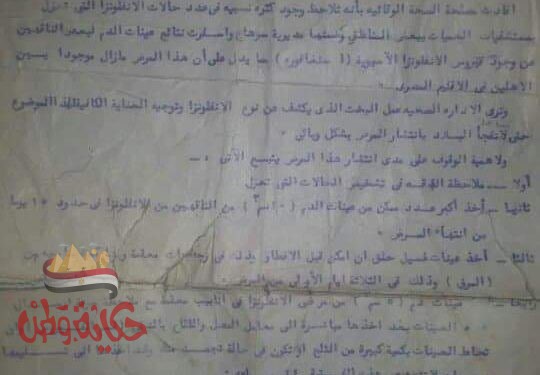 افادت مصلحة الصحة الوقائية بأنه تلاحظ وجود كثرة نسبية فى عدد حالات الانفلونزا التى تعزل
بمستشفيات الحميات ببعض المناطق ومنها مديرية سوهاج واسفرت نتائج عينات الدم لبعض الناقهين
عن وجود فيروس الانفلونزا الآسيوية ( ) مما يدل على أن هذا المرض مازال موجودا بين
الاهلين فى الاقليم المصرى
وترى الادارة الصحية عمل البحث الذى يكشف عن نوع الانفلونزا وتوجيه العناية الكافية لهذا الموضوع
حتى لا تفجأ البلاد بانتشار المرض بشكل وبائى
ولاهمية الوقوف على مدى انتشار هذا المرض يتبع الآتى :ـ
أولا ــ ملاحظة الدقة فى تشخيص الحالات التى تعزل
ثانيا ــ أخذ أكبر عدد ممكن من عينات الدم ( ١٠ سم٣ ) من الناقهين من الانفلونزا فى حدود ١٥ يوما
من انتهاء المرض
ثالثا ــ أخذ عينات غسيل حلق ان امكن قبل الافطار وذلك فى زجاجات معقمة
( المرق ) وذلك فى الثلاثة ايام الأولى من المرض
رابعا ــ عينات دم ( ٥ سم ) من مرضى الانفلونزا فى انابيب معقمة مع
العينات بعد اخذها مباشرة الى معامل المصل واللقاح
تحاط العينات بكمية كبيرة من الثلج أو تكون فى حالة تجمد الى تسليمها
حكاية وطن